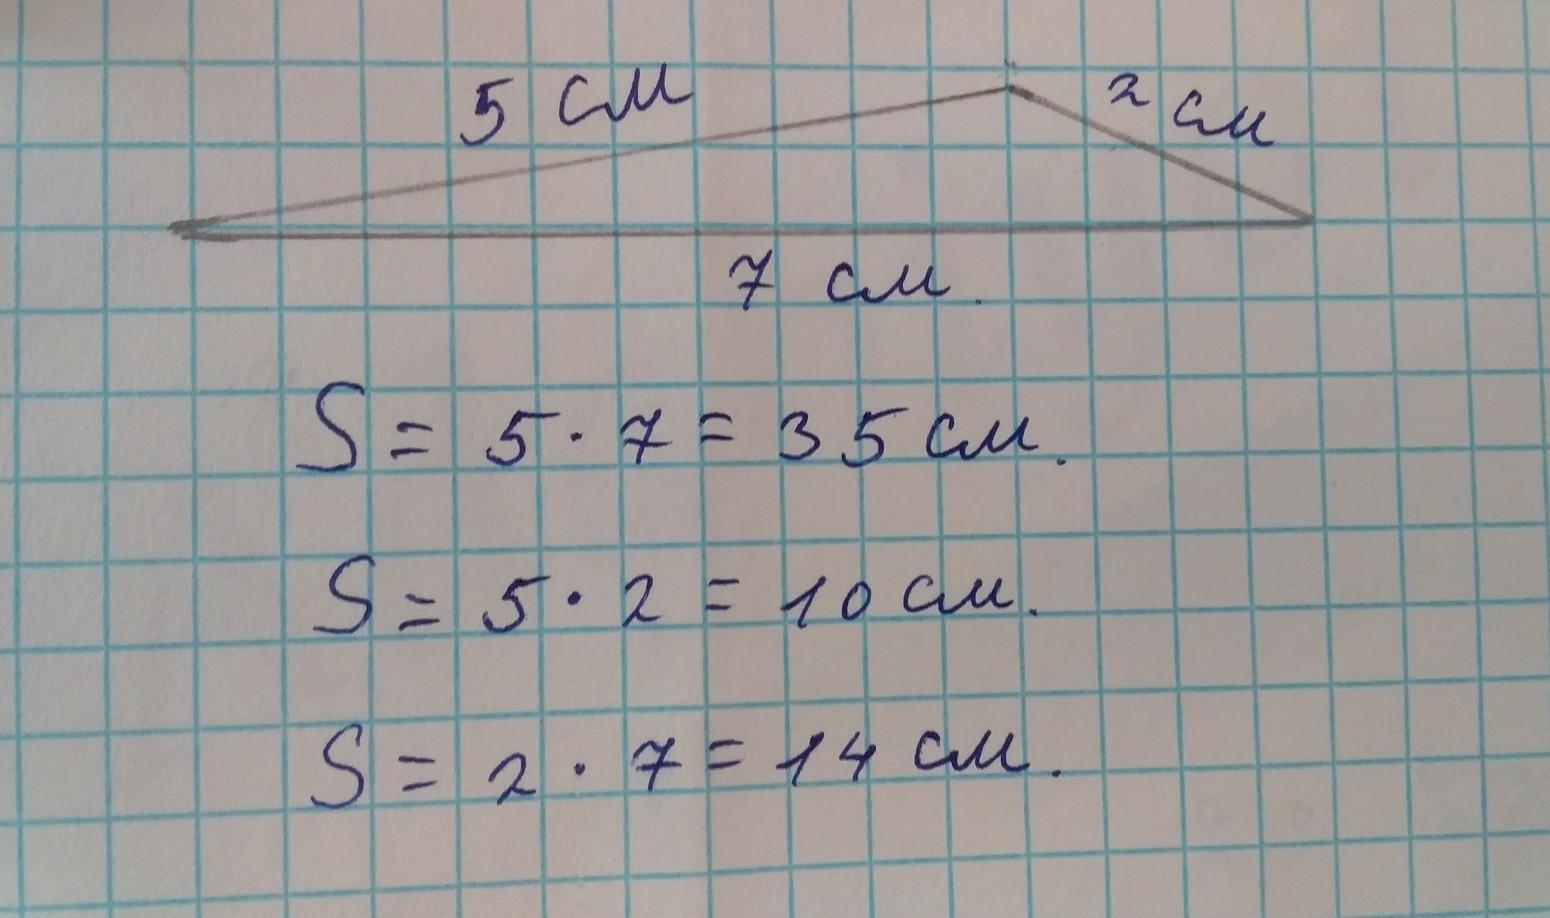 5 см 2 см
7 см.
S = 5 · 7 = 35 см.
S = 5 · 2 = 10 см.
S = 2 · 7 = 14 см.